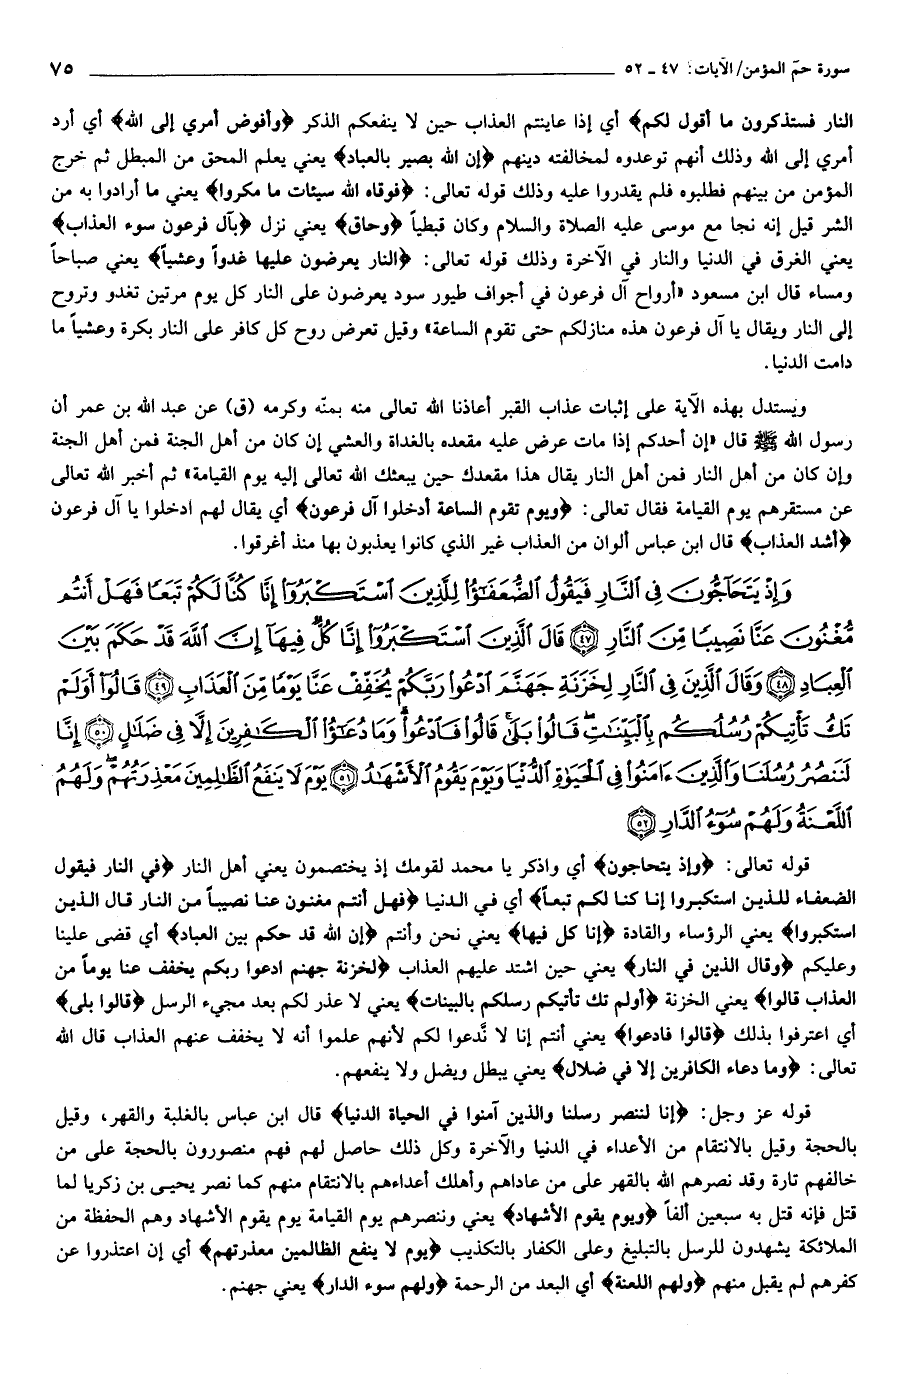 سورة حمّ المؤمن/ الآيات: ٤٧ ـ ٥٢ ٧٥
النار فستذكرون ما أقول لكم﴾ أي إذا عاينتم العذاب حين لا ينفعكم الذكر ﴿وأفوض أمري إلى الله﴾ أي أرد
أمري إلى الله وذلك أنهم توعدوه لمخالفته دينهم ﴿إن الله بصير بالعباد﴾ يعني يعلم المحق من المبطل ثم خرج
المؤمن من بينهم فطلبوه فلم يقدروا عليه وذلك قوله تعالى: ﴿فوقاه الله سيئات ما مكروا﴾ يعني ما أرادوا به من
الشر قيل إنه نجا مع موسى عليه الصلاة والسلام وكان قبطياً ﴿وحاق﴾ يعني نزل ﴿بآل فرعون سوء العذاب﴾
يعني الغرق في الدنيا والنار في الآخرة وذلك قوله تعالى: ﴿النار يعرضون عليها غدواً وعشياً﴾ يعني صباحاً
ومساء قال ابن مسعود «أرواح آل فرعون في أجواف طيور سود يعرضون على النار كل يوم مرتين تغدو وتروح
إلى النار ويقال يا آل فرعون هذه منازلكم حتى تقوم الساعة» وقيل تعرض روح كل كافر على النار بكرة وعشياً ما
دامت الدنيا.
ويَستدل بهذه الآية على إثبات عذاب القبر أعاذنا الله تعالى منه بمنّه وكرمه (ق) عن عبد الله بن عمر أن
رسول الله ﷺ قال «إن أحدكم إذا مات عرض عليه مقعده بالغداة والعشي إن كان من أهل الجنة فمن أهل الجنة
وإن كان من أهل النار فمن أهل النار يقال هذا مقعدك حين يبعثك الله تعالى إليه يوم القيامة» ثم أخبر الله تعالى
عن مستقرهم يوم القيامة فقال تعالى: ﴿ويوم تقوم الساعة أدخلوا آل فرعون﴾ أي يقال لهم ادخلوا يا آل فرعون
﴿أشد العذاب﴾ قال ابن عباس ألوان من العذاب غير الذي كانوا يعذبون بها منذ أغرقوا.
وَإِذْ يَتَحَآجُّونَ فِى ٱلنَّارِ فَيَقُولُ ٱلضُّعَفَـٰٓؤُا۟ لِلَّذِينَ ٱسْتَكْبَرُوٓا۟ إِنَّا كُنَّا لَكُمْ تَبَعًا فَهَلْ أَنتُم
مُّغْنُونَ عَنَّا نَصِيبًا مِّنَ ٱلنَّارِ ﴿٤٧﴾ قَالَ ٱلَّذِينَ ٱسْتَكْبَرُوٓا۟ إِنَّا كُلٌّ فِيهَآ إِنَّ ٱللَّهَ قَدْ حَكَمَ بَيْنَ
ٱلْعِبَادِ ﴿٤٨﴾ وَقَالَ ٱلَّذِينَ فِى ٱلنَّارِ لِخَزَنَةِ جَهَنَّمَ ٱدْعُوا۟ رَبَّكُمْ يُخَفِّفْ عَنَّا يَوْمًا مِّنَ ٱلْعَذَابِ ﴿٤٩﴾ قَالُوٓا۟ أَوَلَمْ
تَكُ تَأْتِيكُمْ رُسُلُكُم بِٱلْبَيِّنَـٰتِ ۖ قَالُوا۟ بَلَىٰ ۚ قَالُوا۟ فَٱدْعُوا۟ ۗ وَمَا دُعَـٰٓؤُا۟ ٱلْكَـٰفِرِينَ إِلَّا فِى ضَلَـٰلٍ ﴿٥٠﴾ إِنَّا
لَنَنصُرُ رُسُلَنَا وَٱلَّذِينَ ءَامَنُوا۟ فِى ٱلْحَيَوٰةِ ٱلدُّنْيَا وَيَوْمَ يَقُومُ ٱلْأَشْهَـٰدُ ﴿٥١﴾ يَوْمَ لَا يَنفَعُ ٱلظَّـٰلِمِينَ مَعْذِرَتُهُمْ ۖ وَلَهُمُ
ٱللَّعْنَةُ وَلَهُمْ سُوٓءُ ٱلدَّارِ ﴿٥٢﴾
قوله تعالى: ﴿وإذ يتحاجون﴾ أي واذكر يا محمد لقومك إذ يختصمون يعني أهل النار ﴿في النار فيقول
الضعفاء للذين استكبروا إنا كنا لكم تبعاً﴾ أي في الدنيا ﴿فهل أنتم مغنون عنا نصيباً من النار قال الذين
استكبروا﴾ يعني الرؤساء والقادة ﴿إنا كل فيها﴾ يعني نحن وأنتم ﴿إن الله قد حكم بين العباد﴾ أي قضى علينا
وعليكم ﴿وقال الذين في النار﴾ يعني حين اشتد عليهم العذاب ﴿لخزنة جهنم ادعوا ربكم يخفف عنا يوماً من
العذاب قالوا﴾ يعني الخزنة ﴿أولم تك تأتيكم رسلكم بالبينات﴾ يعني لا عذر لكم بعد مجيء الرسل ﴿قالوا بلى﴾
أي اعترفوا بذلك ﴿قالوا فادعوا﴾ يعني أنتم إنا لا نَّدعوا لكم لأنهم علموا أنه لا يخفف عنهم العذاب قال الله
تعالى: ﴿وما دعاء الكافرين إلا في ضلال﴾ يعني يبطل ويضل ولا ينفعهم.
قوله عز وجل: ﴿إنا لننصر رسلنا والذين آمنوا في الحياة الدنيا﴾ قال ابن عباس بالغلبة والقهر، وقيل
بالحجة وقيل بالانتقام من الأعداء في الدنيا والآخرة وكل ذلك حاصل لهم فهم منصورون بالحجة على من
خالفهم تارة وقد نصرهم الله بالقهر على من عاداهم وأهلك أعداءهم بالانتقام منهم كما نصر يحيى بن زكريا لما
قتل فإنه قتل به سبعين ألفاً ﴿ويوم يقوم الأشهاد﴾ يعني وننصرهم يوم القيامة يوم يقوم الأشهاد وهم الحفظة من
الملائكة يشهدون للرسل بالتبليغ وعلى الكفار بالتكذيب ﴿يوم لا ينفع الظالمين معذرتهم﴾ أي إن اعتذروا عن
كفرهم لم يقبل منهم ﴿ولهم اللعنة﴾ أي البعد من الرحمة ﴿ولهم سوء الدار﴾ يعني جهنم.